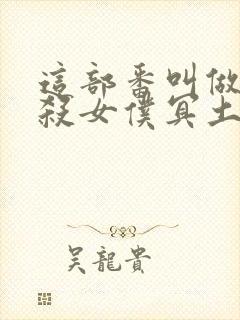 這部番叫做
殺女僕冥土
吳龍貴